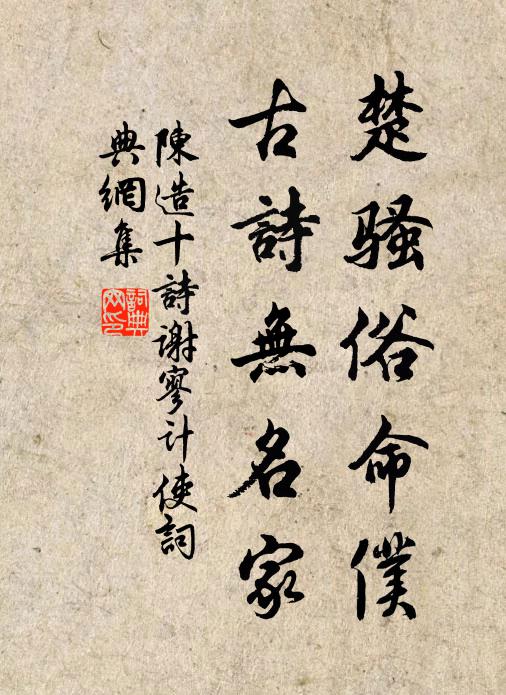 楚骚俗命僕
古詩無名家
陳造十詩谢寥计使詞
典網集
詞典網印